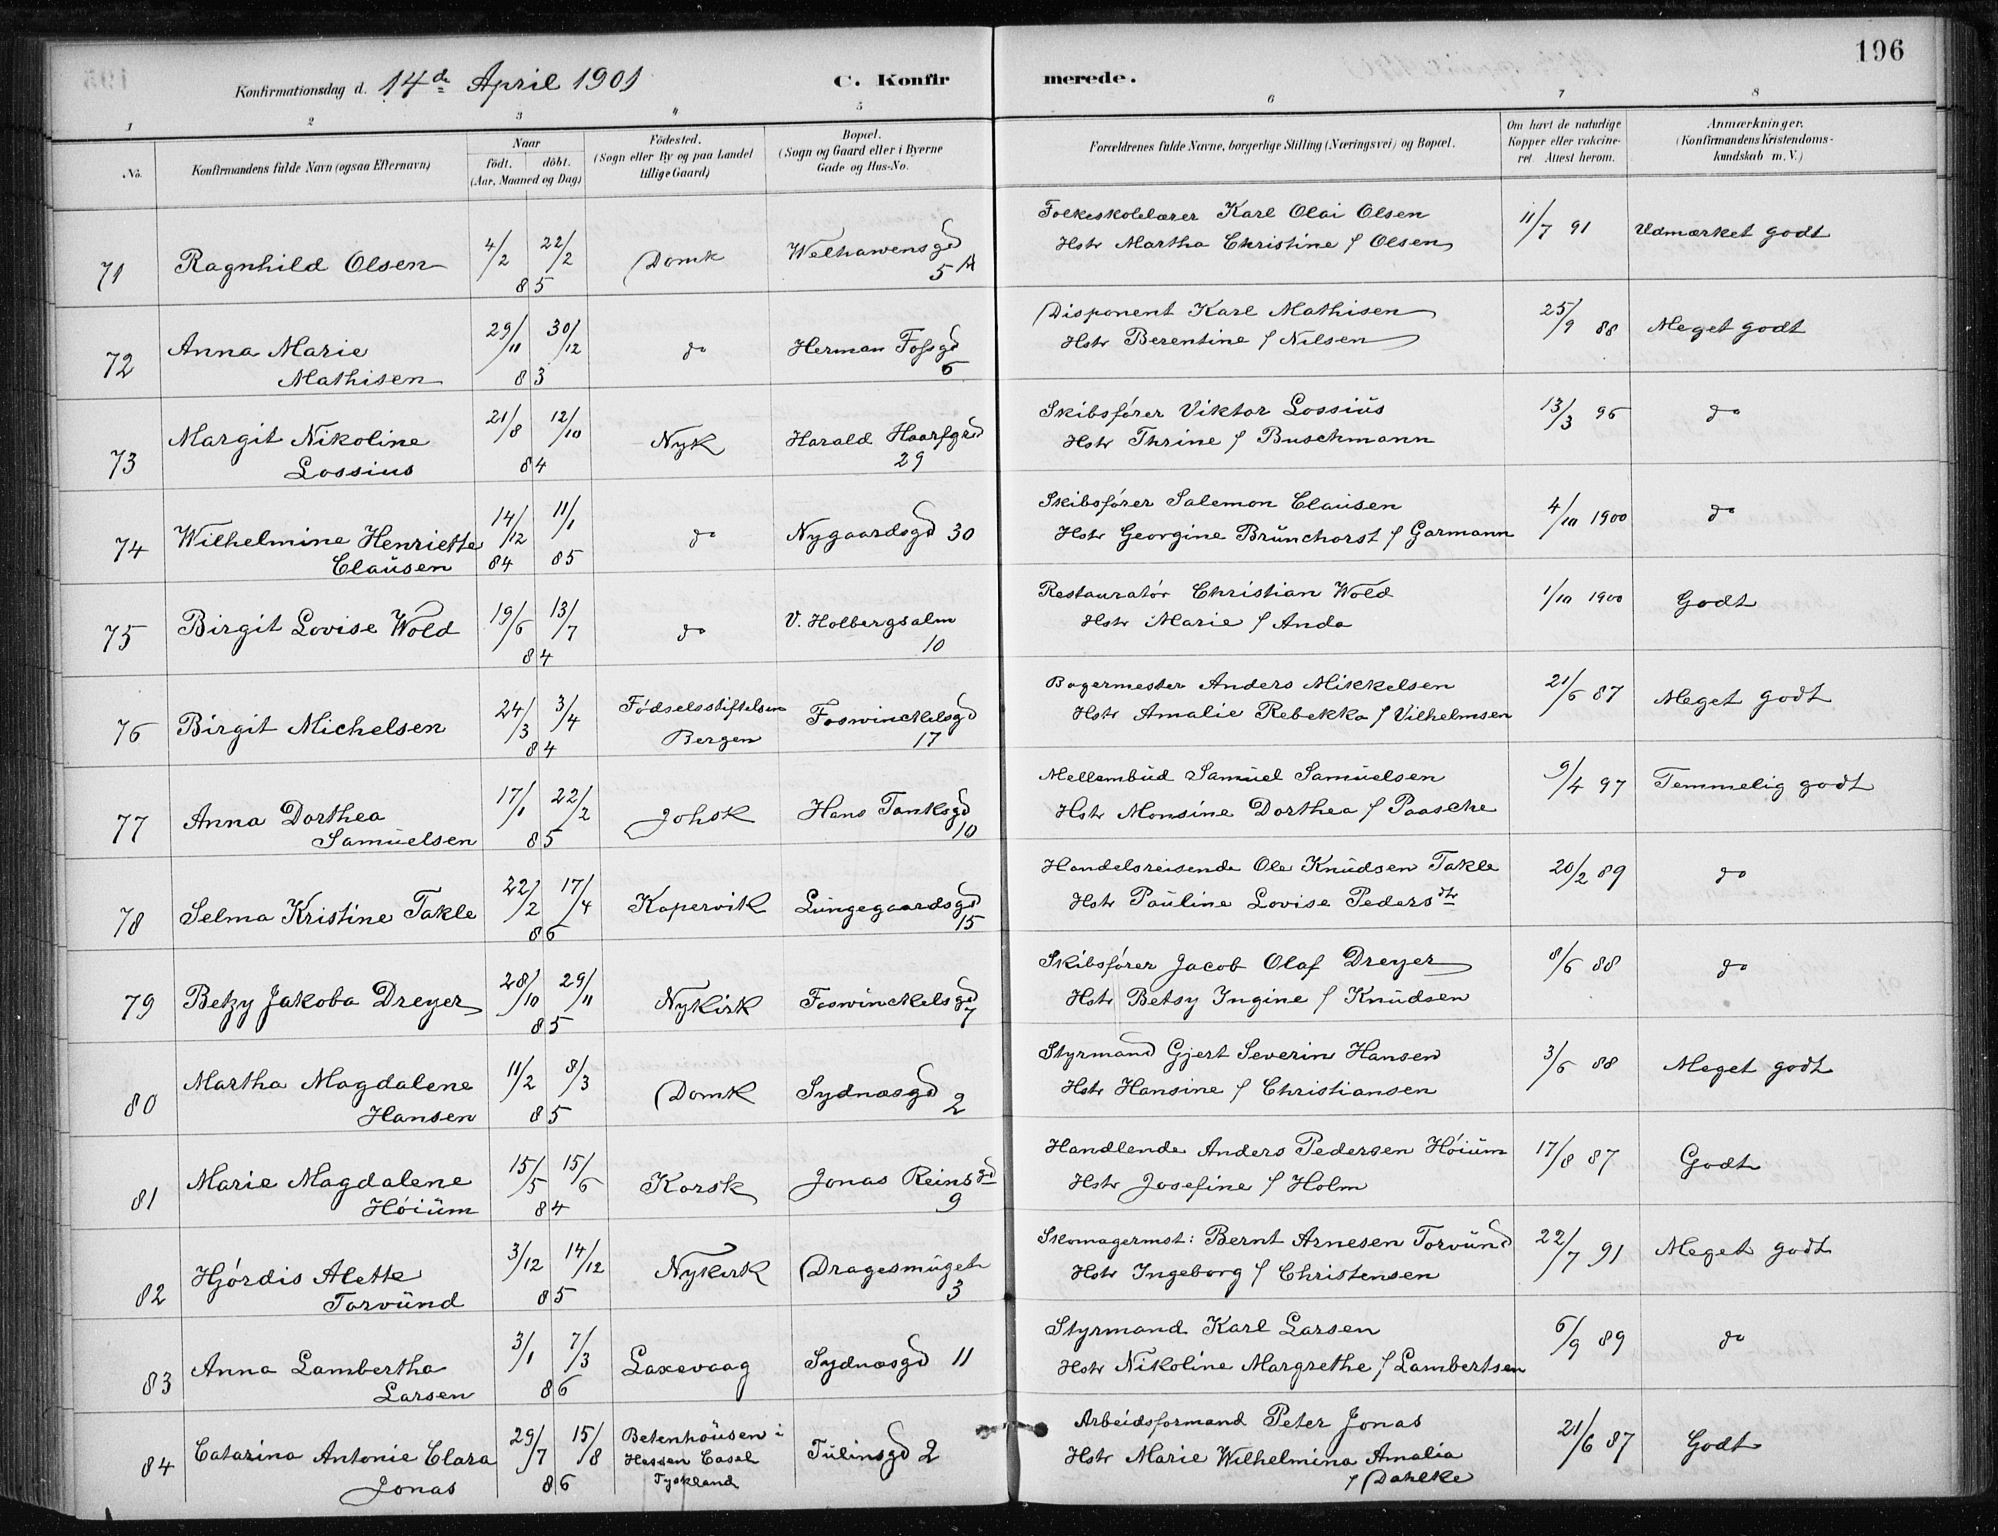 196
Konfirmationsdag d. 14de April 1901
C. Konfirmerede.
1 2 3 4 5 6 7 8
No.
Konfirmandens fulde Navn (ogsaa Efternavn)
Naar
födt. döbt.
(Aar, Maaned og Dag)
Födested.
(Sogn eller By og paa Landet
tillige Gaard)
Bopæl.
(Sogn og Gaard eller i Byerne
Gade og Hus-No.
Forældrenes fulde Navne, borgerlige Stilling (Næringsvei) og Bopæl.
Om havt de naturlige
Kopper eller vakcine-
ret. Attest herom.
Anmærkninger.
(Konfirmandens Kristendoms-
kundskab m. V.)
71 Ragnhild Olsen 4/2 22/2 85 Domk Welhavensgd 5 A
Folkeskolelærer Karl Olai Olsen
Hstr Martha Christine f Olsen
11/7 91 Udmærket godt
72 Anna Marie
Mathisen 29/11 30/12 83 do Herman Fossgd 6
Disponent Karl Mathisen
Hstr Berentine f Nilsen
25/9 88 Meget godt
73 Margit Nikoline
Lossius 21/8 12/10 84 Nyk Harald Haarfgrd 29
Skibsfører Viktor Lossius
Hstr Thrine f Buschmann
13/3 96 do
74 Wilhelmine Henriette
Clausen 14/12 84 11/1 85 do Nygaardsgd 30
Skibsfører Salemon Clausen
Hstr Georgine Brunchorst f Garmann
4/10 1900 do
75 Birgit Lovise Wold 19/6 13/7 84 do V. Holbergsalm 10
Restauratør Christian Wold
Hstr Marie f Anda
1/10 1900 Godt
76 Birgit Michelsen 24/3 3/4 84 Fødselsstiftelsen
Bergen Foswinckelsgd 17
Bagermester Anders Mikkelsen
Hstr Amalie Rebekka f Vilhelmsen
21/6 87 Meget godt
77 Anna Dorthea
Samuelsen 17/1 22/2 85 Johsk Hans Tanksgd 10
Mellembud Samuel Samuelsen
Hstr Monsine Dorthea f Paasche
9/4 97 Temmelig godt
78 Selma Kristine Takle 22/2 17/4 86 Kopervik Lungegaardsgd 15
Handelsreisende Ole Knudsen Takle
Hstr Pauline Lovise Pedersdtr
20/2 89 do
79 Betzy Jakoba Dreyer 28/10 29/11 85 Nykirk Foswinckelsgd 7
Skibsfører Jacob Olaf Dreyer
Hstr Betsy Ingine f Knudsen
8/6 88 do
80 Martha Magdalene
Hansen 11/2 8/3 85 Domk Sydnæsgd 2
Styrmand Gjert Severin Hansen
Hstr Hansine f Christiansen
3/6 88 Meget godt
81 Marie Magdalene
Høium 15/5 15/6 84 Korsk Jonas Reinsgd 9
Handlende Anders Pedersen Høium
Hstr Josefine f Holm
17/8 87 Godt
82 Hjørdis Alette
Torvund 3/12 14/12 85 Nykirk Dragesmuget 3
Skomagermst: Bernt Arnesen Torvund
Hstr Ingeborg f Christensen
22/7 91 Meget godt
83 Anna Lambertha
Larsen 3/1 7/3 86 Laxevaag Sydnæsgd 11
Styrmand Karl Larsen
Hstr Nikoline Margrethe f Lambertsen
6/9 89 do
84 Catarina Antonie Clara
Jonas 29/7 15/8 86 Betenhousen i
Hessen Casel
Tyskland Tulinsgd 2
Arbeidsformand Peter Jonas
Hstr Marie Wilhelmina Amalia
f Dahlke
21/6 87 Godt